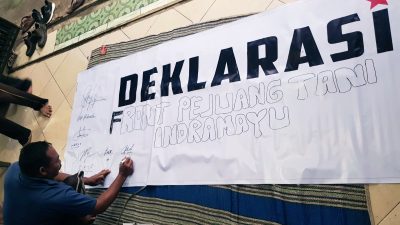 DEKLARASI
FRONT PEJUANG TANI
INDRAMAYU